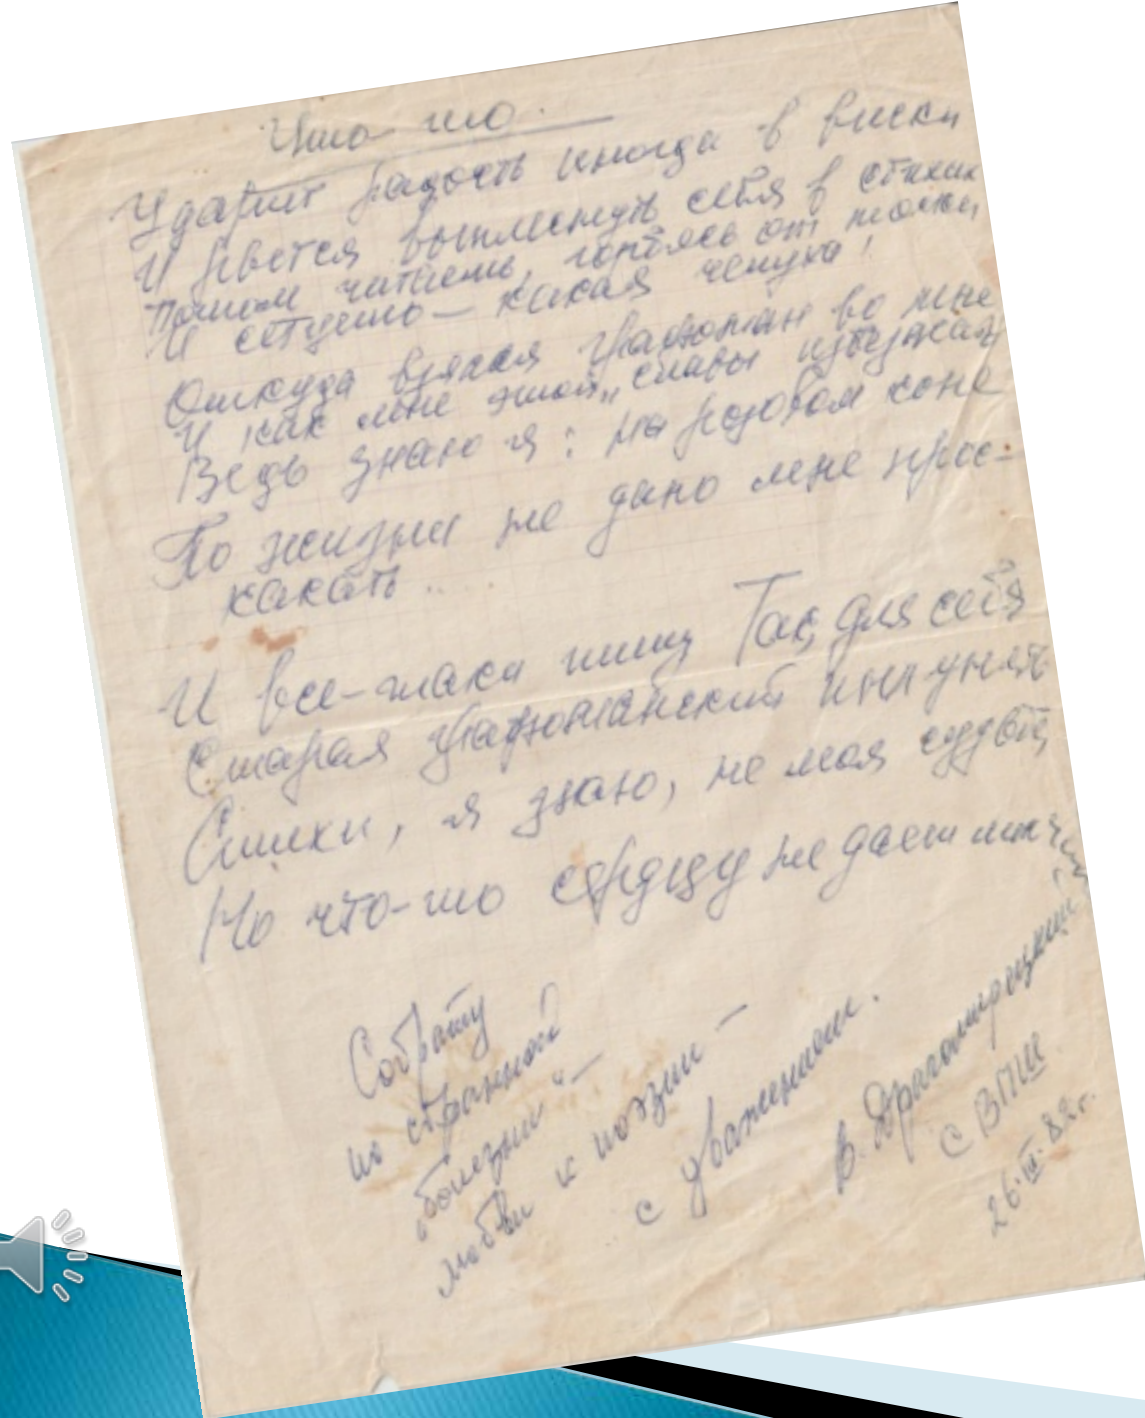 Что-то.
Ударит радость иногда в виски
И рвется выплеснуть себя в стихах
Потом читаешь, горбясь от тоски,
И сетуешь — какая чепуха!
Откуда взялся графоман во мне
И как мне этой „славы избежать
Ведь знаю я: на розовом коне
По жизни не дано мне прос-
какать..
И все-таки пишу Так, для себя
Старая графоманский пыл унять
Стихи, я знаю, не моя судьба,
Но что-то сердцу не дает молчать
Собрату
по странной
„болезни“ —
любви к поэзии —
с уважением.
В. Драгомирецкий
с ВПШ